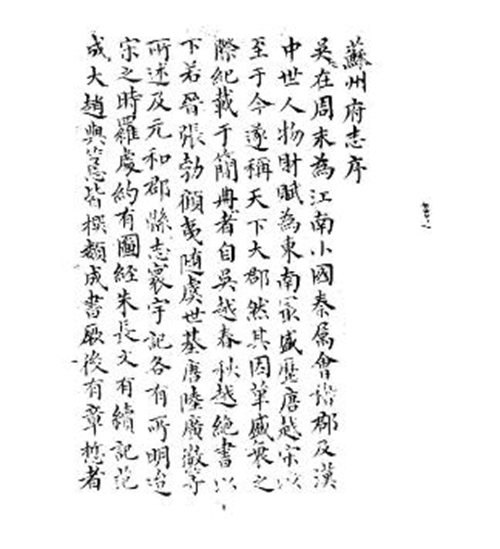 蘇州府志序
吳在周末為江南小國秦屬會稽郡及漢
中世人物財賦為東南最盛歷唐越宋以
至于今遂稱天下大郡然其因革盛衰之
際紀載于簡冊者自吳越春秋越絕書以
下若晉張勃顧夷隋虞世基唐陸廣微等
所述及元和郡縣志寰宇記各有所明迨
宋之時羅處約有圖經朱長文有續記范
成大趙與𥲅皆撰類成書厥後有章悊者